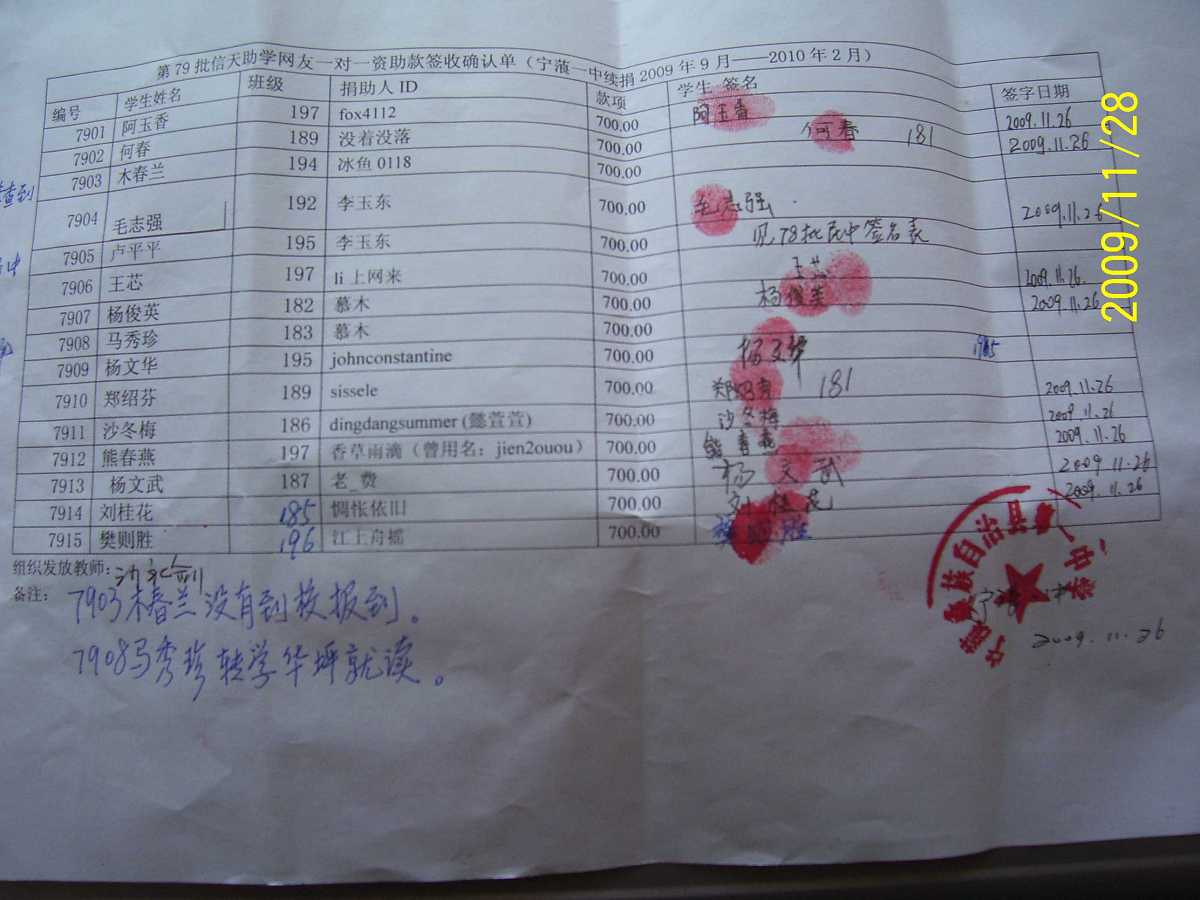 第79批信天助学网友一对一资助款签收确认单（宁蒗一中续捐2009年9月——2010年2月）
编号 学生姓名 班级 捐助人ID 款项 学生 签名 签字日期
7901 阿玉香 197 fox4112 700.00 阿玉香 2009.11.26
7902 何春 189 没着没落 700.00 何春 181 2009.11.26
7903 木春兰 194 冰鱼0118 700.00
7904 毛志强 192 李玉东 700.00 毛志强 2009.11.26
7905 卢平平 195 李玉东 700.00 见78批民中签名表
7906 王芯 197 li上网来 700.00 王芯 2009.11.26.
7907 杨俊英 182 慕木 700.00 杨俊英 2009.11.26
7908 马秀珍 183 慕木 700.00
7909 杨文华 195 johnconstantine 700.00 杨文华
7910 郑绍芬 189 sissele 700.00 郑绍芬 181 2009.11.26
7911 沙冬梅 186 dingdangsummer (懿萱萱) 700.00 沙冬梅 2009.11.26
7912 熊春燕 197 香草雨滴（曾用名：jien2ouou） 700.00 熊春燕 2009.11.26
7913 杨文武 187 老_费 700.00 杨文武 2009.11.26
7914 刘桂花 185 惆怅依旧 700.00 2009.11.26
7915 樊则胜 196 江上舟摇 700.00 樊则胜
组织发放教师:
备注: 7903木春兰没有到校报到。
7908马秀珍转学华坪就读。
2009.11.26
2009/11/28